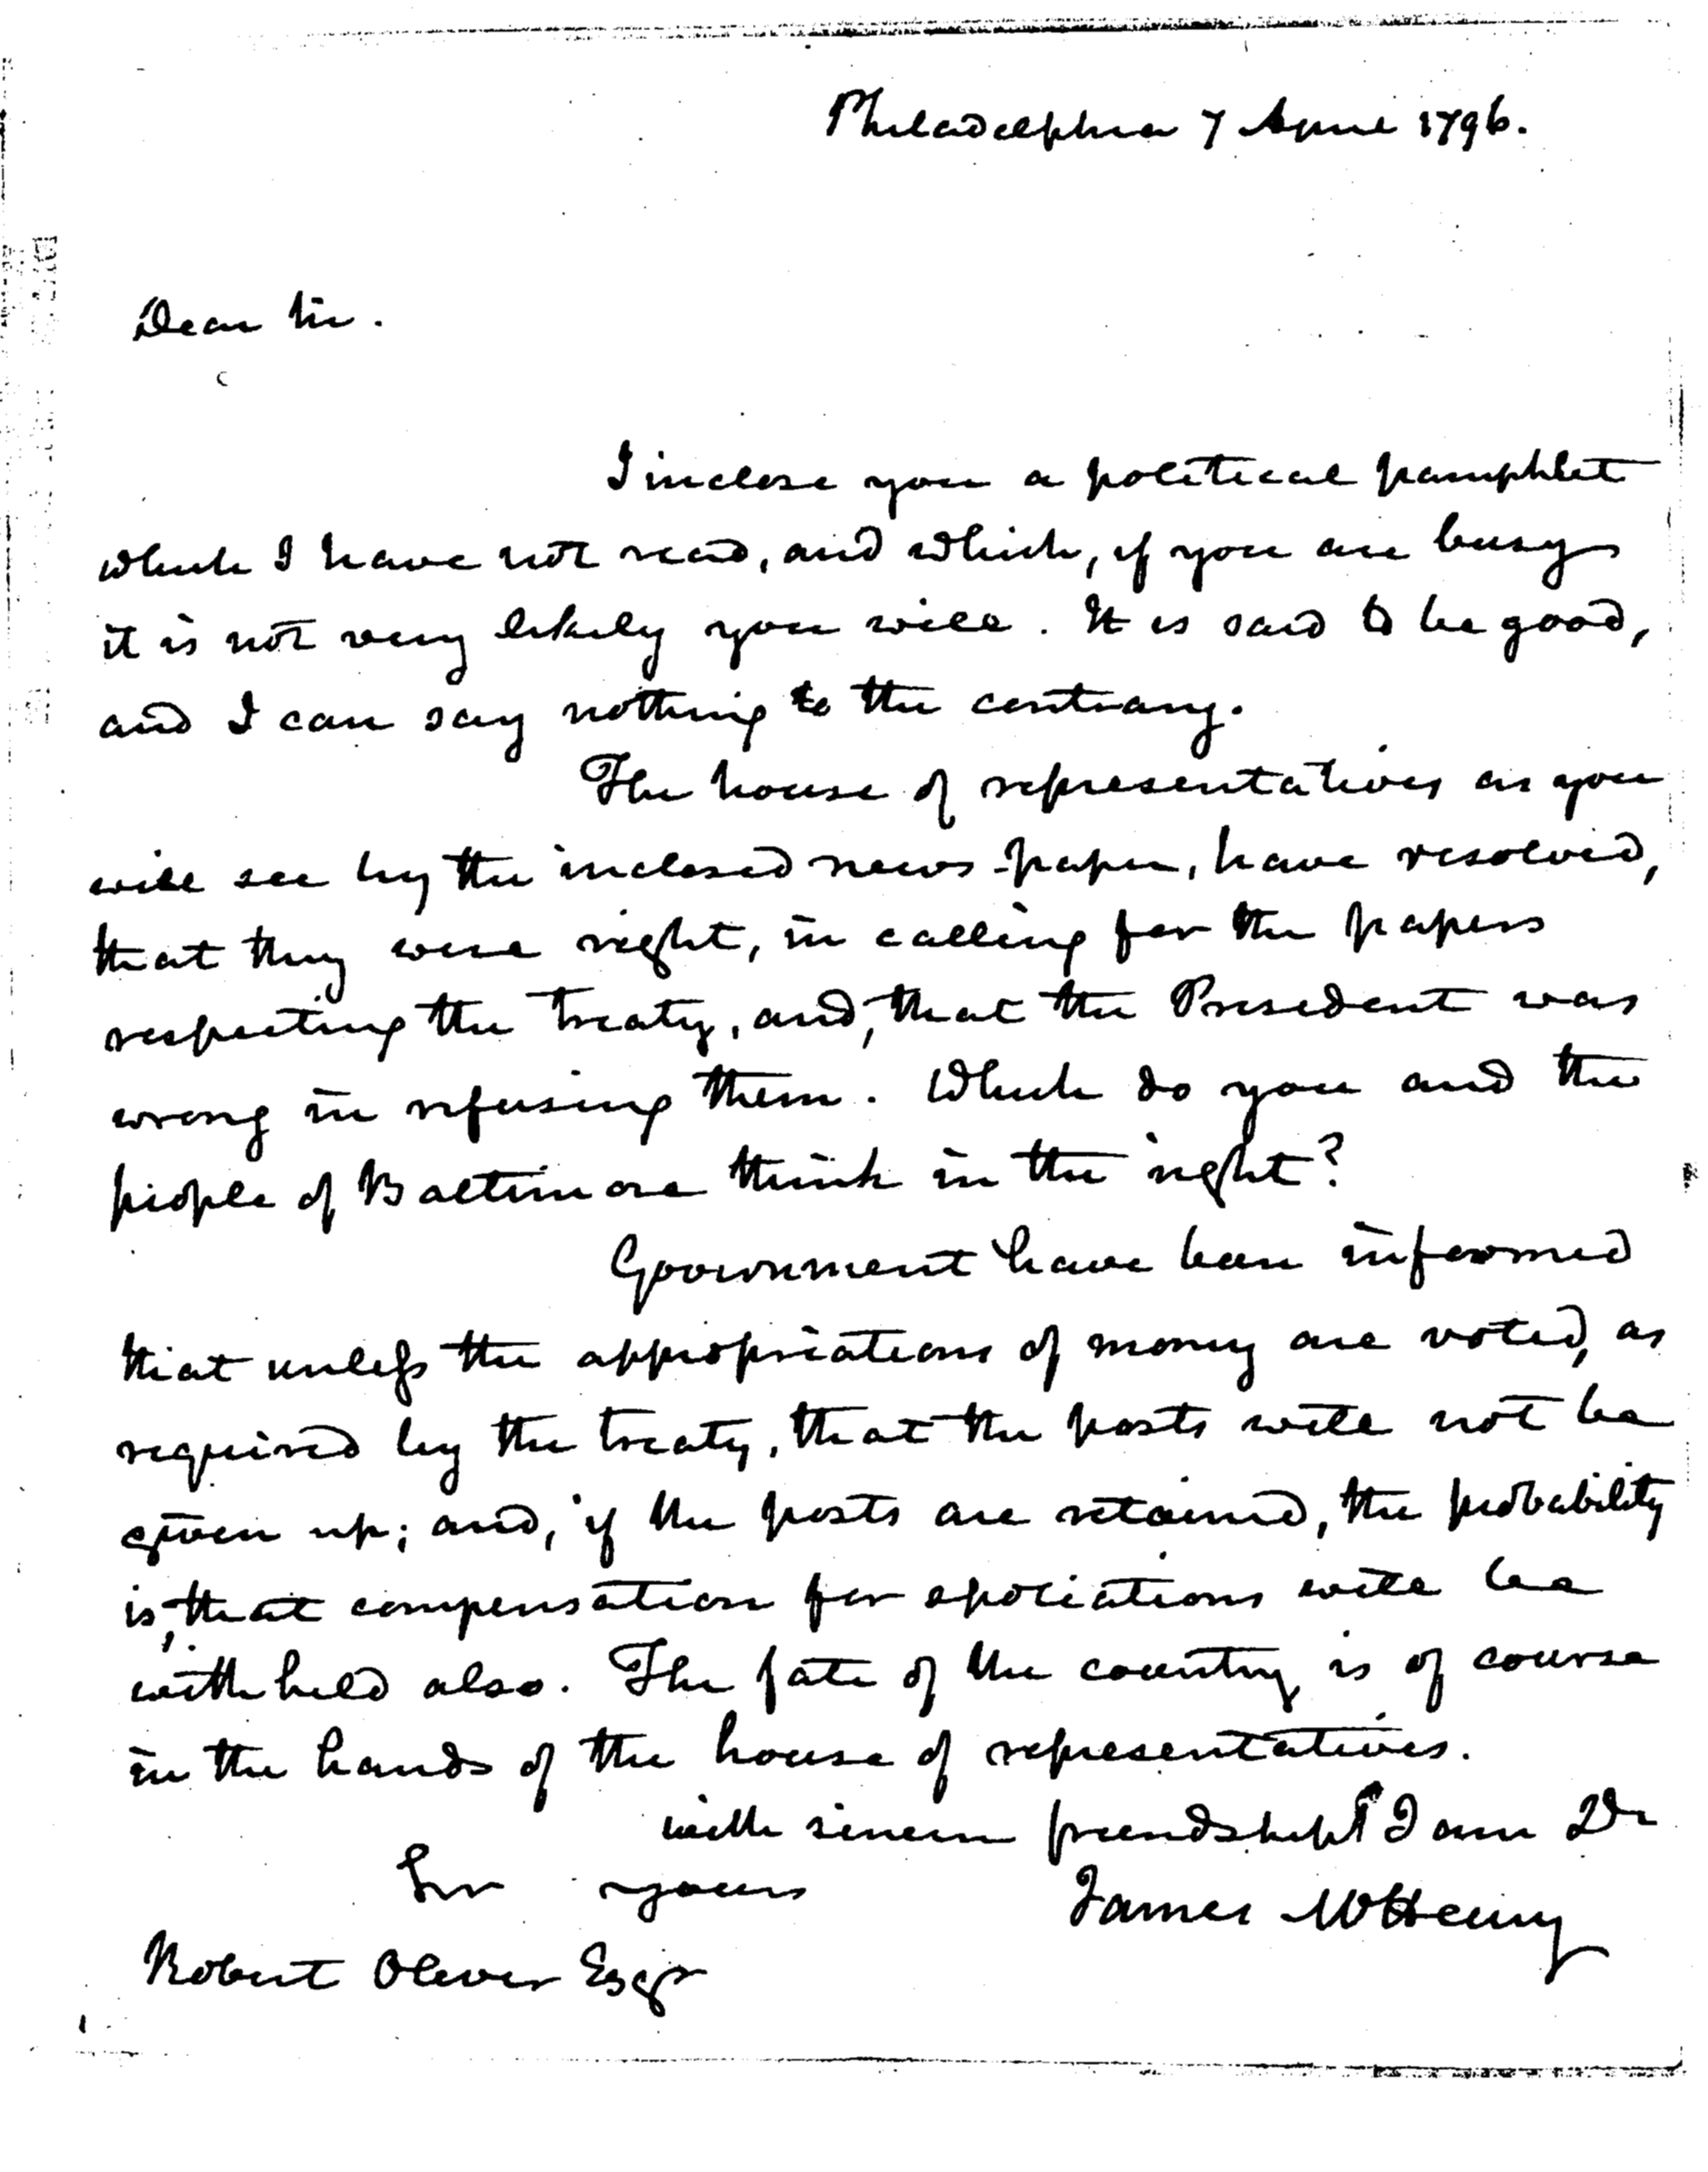 Philadelphia 7 April 1796.
Dear Sir.
I inclose you a political pamphlet
which I have not read, and which, if you are busy
it is not very likely you will. It is said to be good,
and I can say nothing to the contrary.
The house of representatives as you
will see by the inclosed news-paper, have resolved,
that they were right, in calling for the papers
respecting the treaty, and, that the President was
wrong in refusing them. Which do you and the
people of Baltimore think in the right?
Government have been informed
that unless the appropriations of money are voted, as
required by the treaty, that the posts will not be
given up; and, if the posts are retained, the probability
is, that compensation for spoliations will be
withheld also. The fate of the country is of course
in the hands of the house of representatives.
with sincere friendship I am Dr
Sir yours
James McHenry
Robert Oliver Esqr